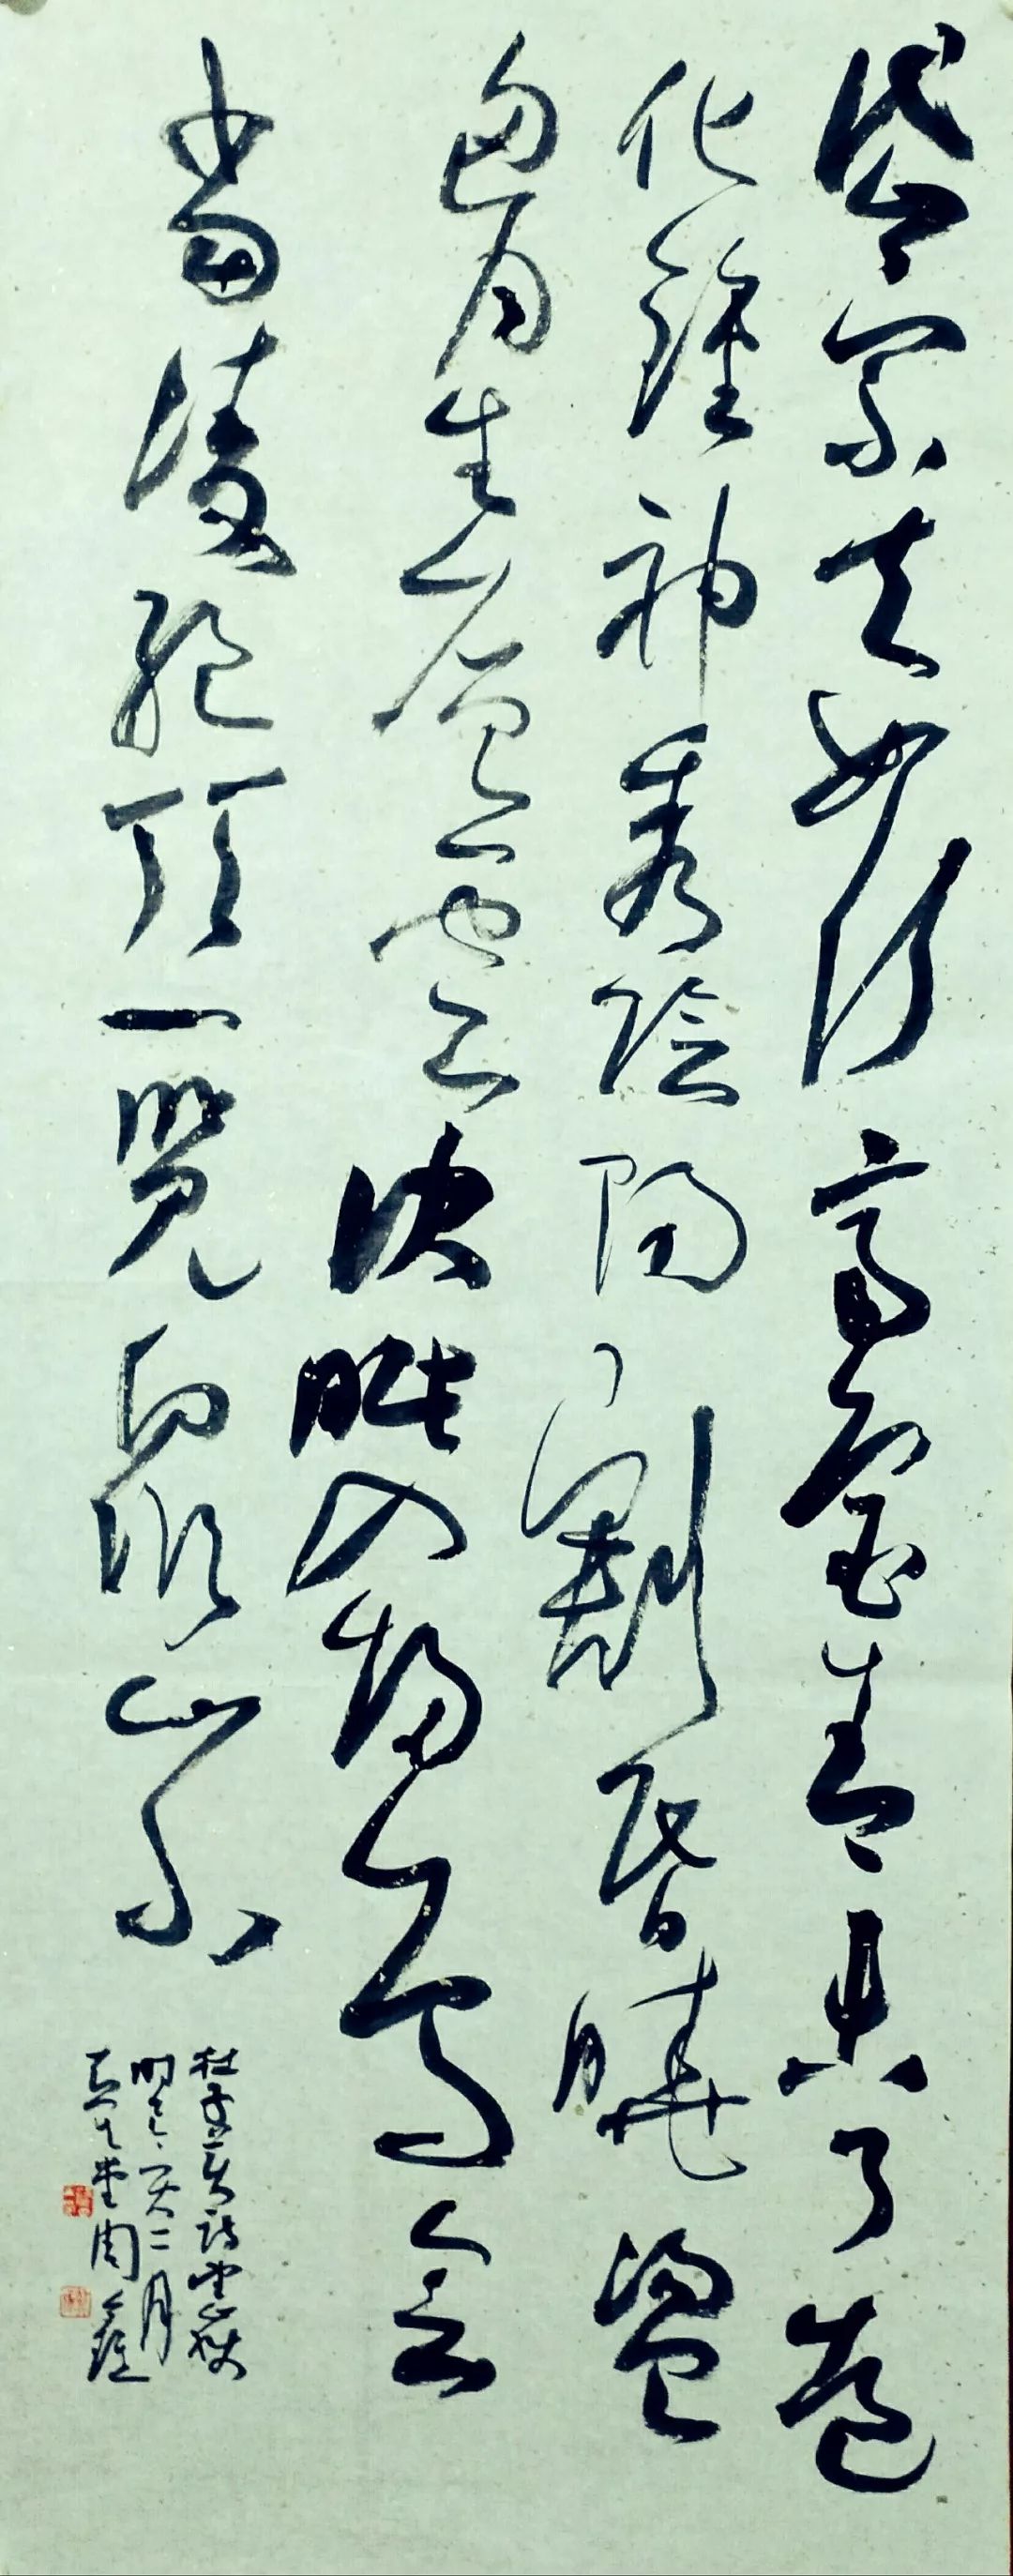 岱宗夫如何齊魯青未了造
化鍾神秀陰陽割昏曉盪
胸生層雲決眥入歸鳥會
當凌絕頂一覽眾山小
杜子美詩望嶽
時己亥二月
堂周